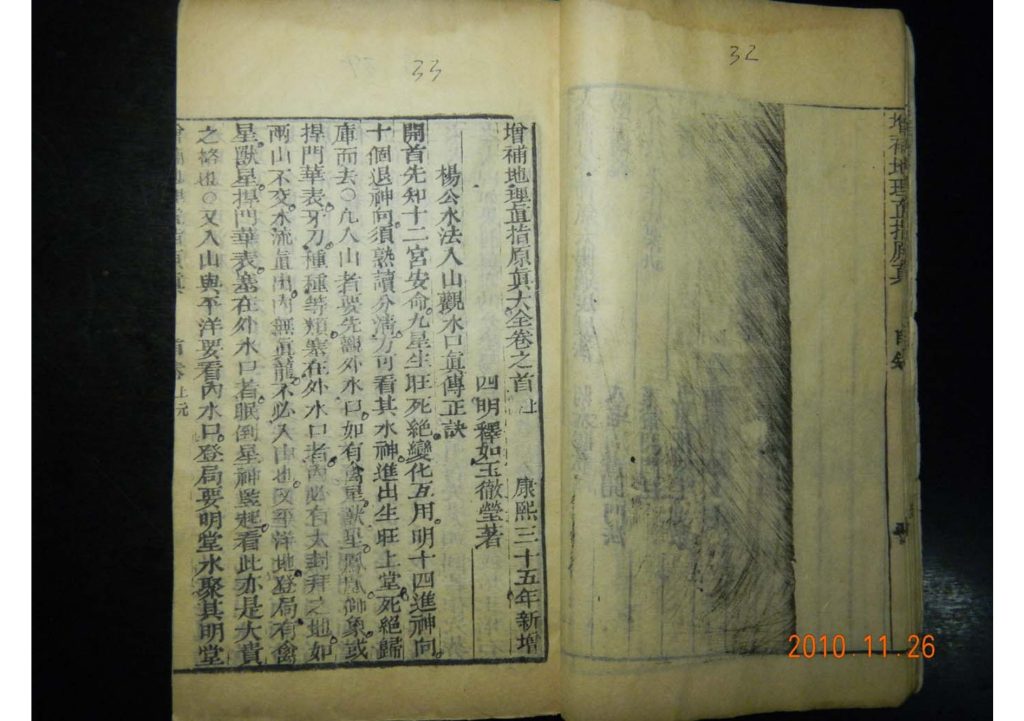 32
增補地理直指原真
目錄
33
增補地理直指原真大全卷之首 上 康熙三十五年新增
四明釋如玉徹瑩著
楊公水法入山觀水口眞傳正訣
開首先知十二宮安命九星生旺死絕變化互用明十四進神向
十個退神向須熟讀分清方可看其水神進出生旺上堂死絕歸
庫而去○凡入山者要先識外水口如有禽星獸星 獅象或
捍門華表牙刀種種等類塞在外水口者內必有大封拜之地如
兩山不交水流直出內無眞龍不必入山也又平洋地登局有禽
星獸星捍門華表塞在外水口者眠倒星神豎起看此亦是大貴
之格也○又入山與平洋要看內水口登局要明堂水聚其明堂
2010.11.26